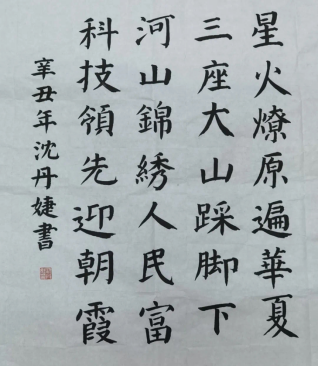 星火燎原遍華夏
三座大山踩脚下
河山錦綉人民富
科技領先迎朝霞
辛丑年沈丹婕書